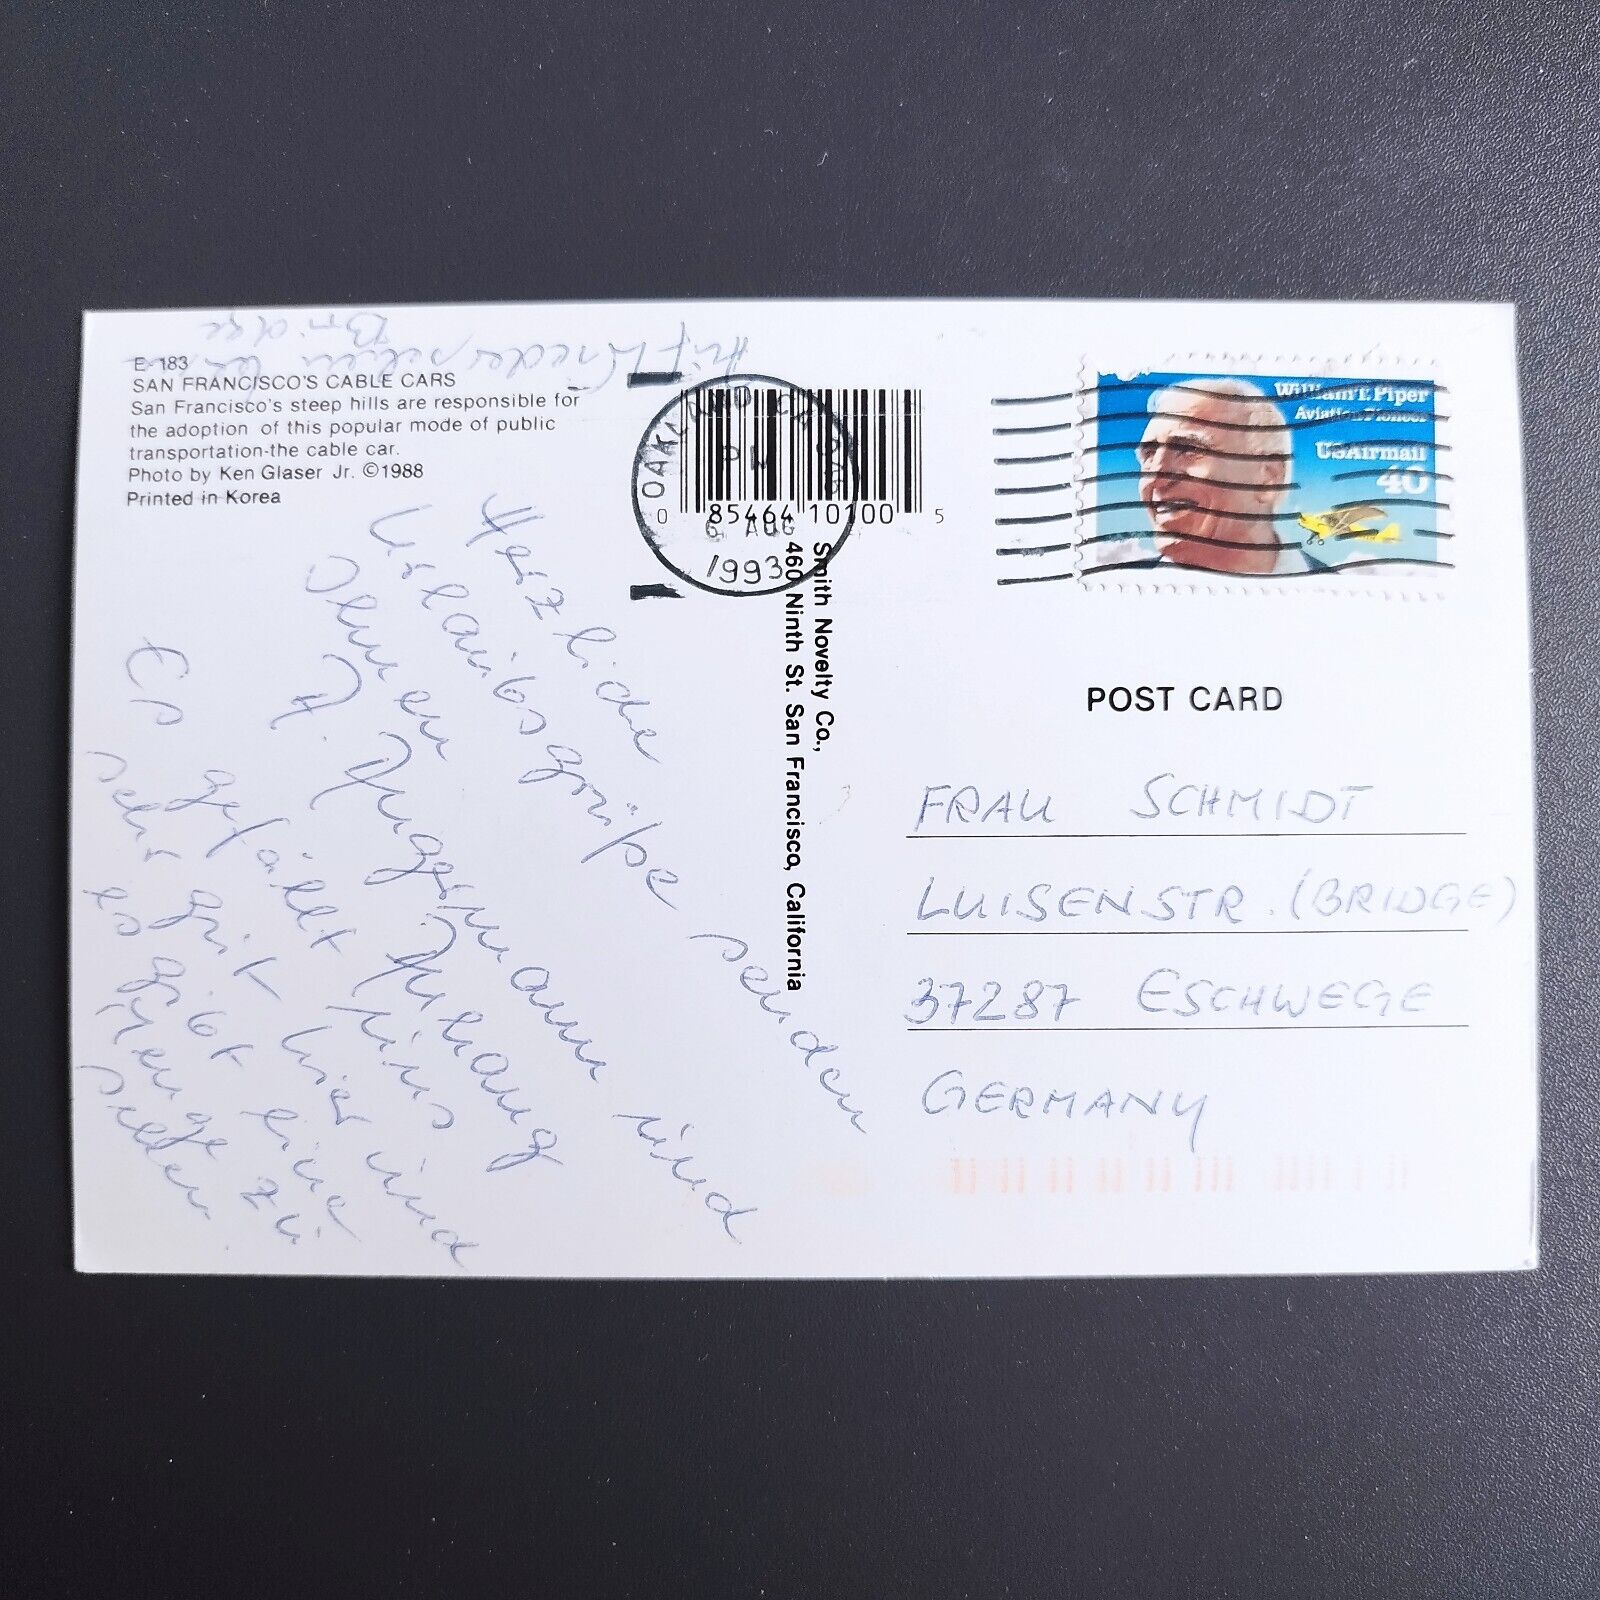 E-183
SAN FRANCISCO'S CABLE CARS
San Francisco's steep hills are responsible for
the adoption of this popular mode of public
transportation-the cable car.
Photo by Ken Glaser Jr. ©1988
Printed in Korea
Herzliche
Urlaubsgrüße senden
Ihnen
A. Jüggemann und
Anhang
Es gefällt uns
sehr gut hier und
es gibt eine
Menge zu
sehen.
Auf Wiedersehen bei
Bridge
OAKLAND CA 946
PM
6 AUG
1993
0 85464 10100 5
Smith Novelty Co.,
460 Ninth St. San Francisco, California
William T. Piper
Aviation Pioneer
USAirmail
40
POST CARD
FRAU SCHMIDT
LUISENSTR. (BRIDGE)
37287 ESCHWEGE
GERMANY